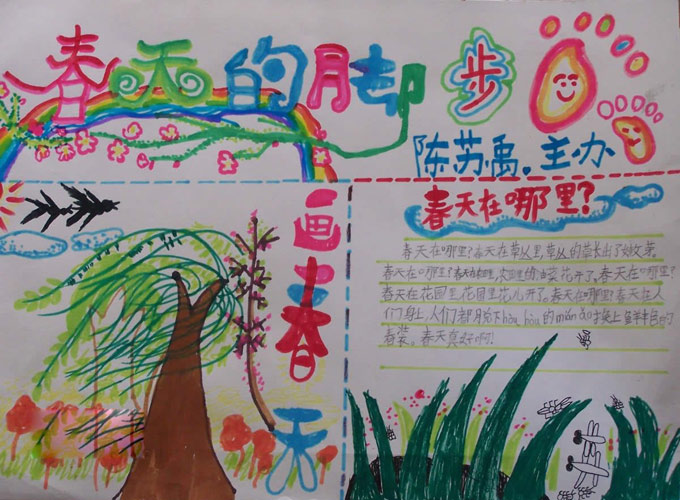 春天的脚步
陈苏禹。主办
画春天
春天在哪里？
春天在哪里？春天在草丛里，草丛的草长出了嫩芽。
春天在哪里？春天在田里，田里的油菜花开了。春天在哪里？
春天在花园里，花园里花儿开了。春天在哪里？春天在人
们身上，人们都脱下hòu hòu的mián ǎo换上鲜丰色的
春装。春天真好啊！